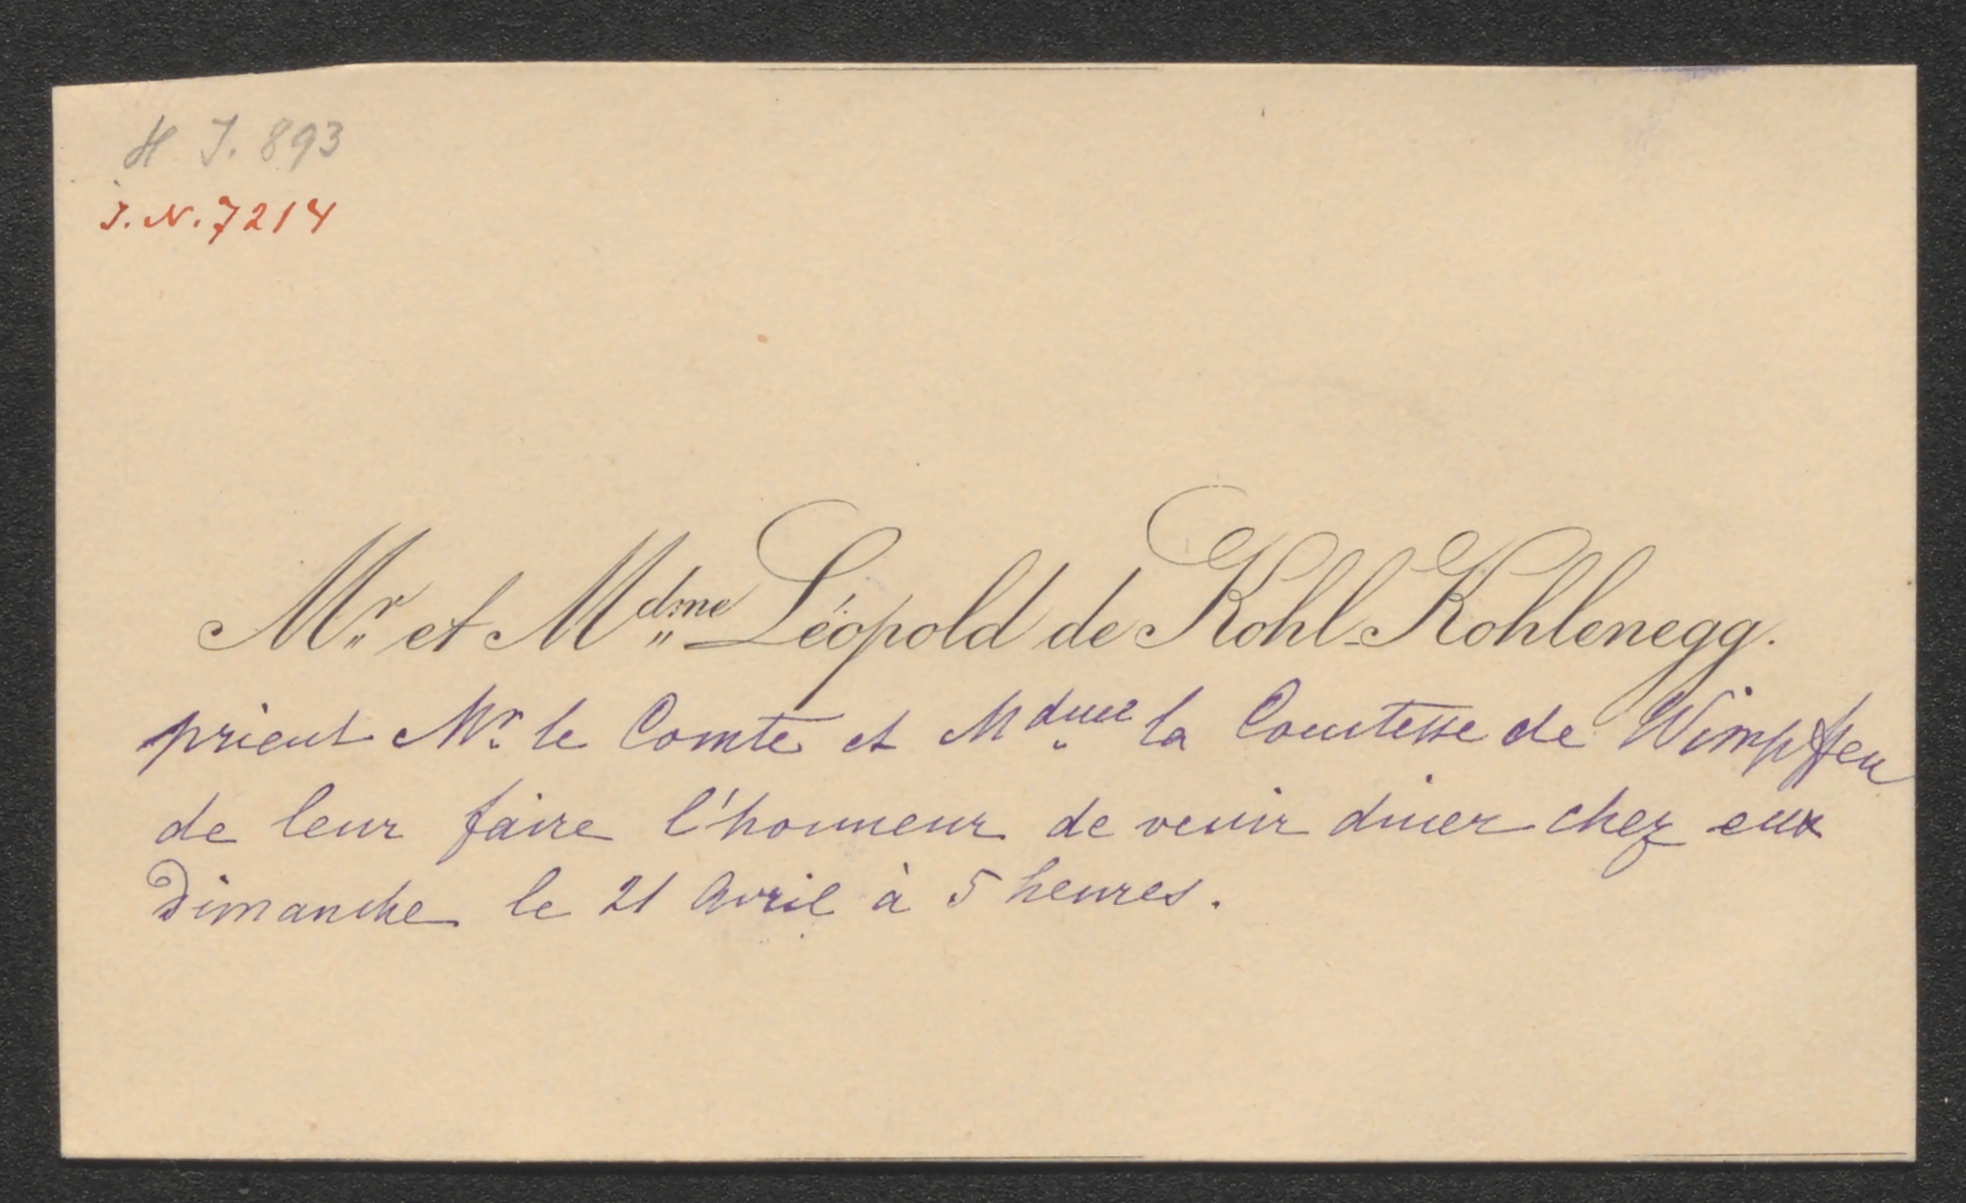 H J. 893
J. N. 7214
Mr et Mdme Léopold de Kohl-Kohlenegg.
prient Mr le Comte et Mdme la Comtesse de Wimpffen
de leur faire l'honneur de venir diner chez eux
Dimanche le 21 Avril à 5 heures.